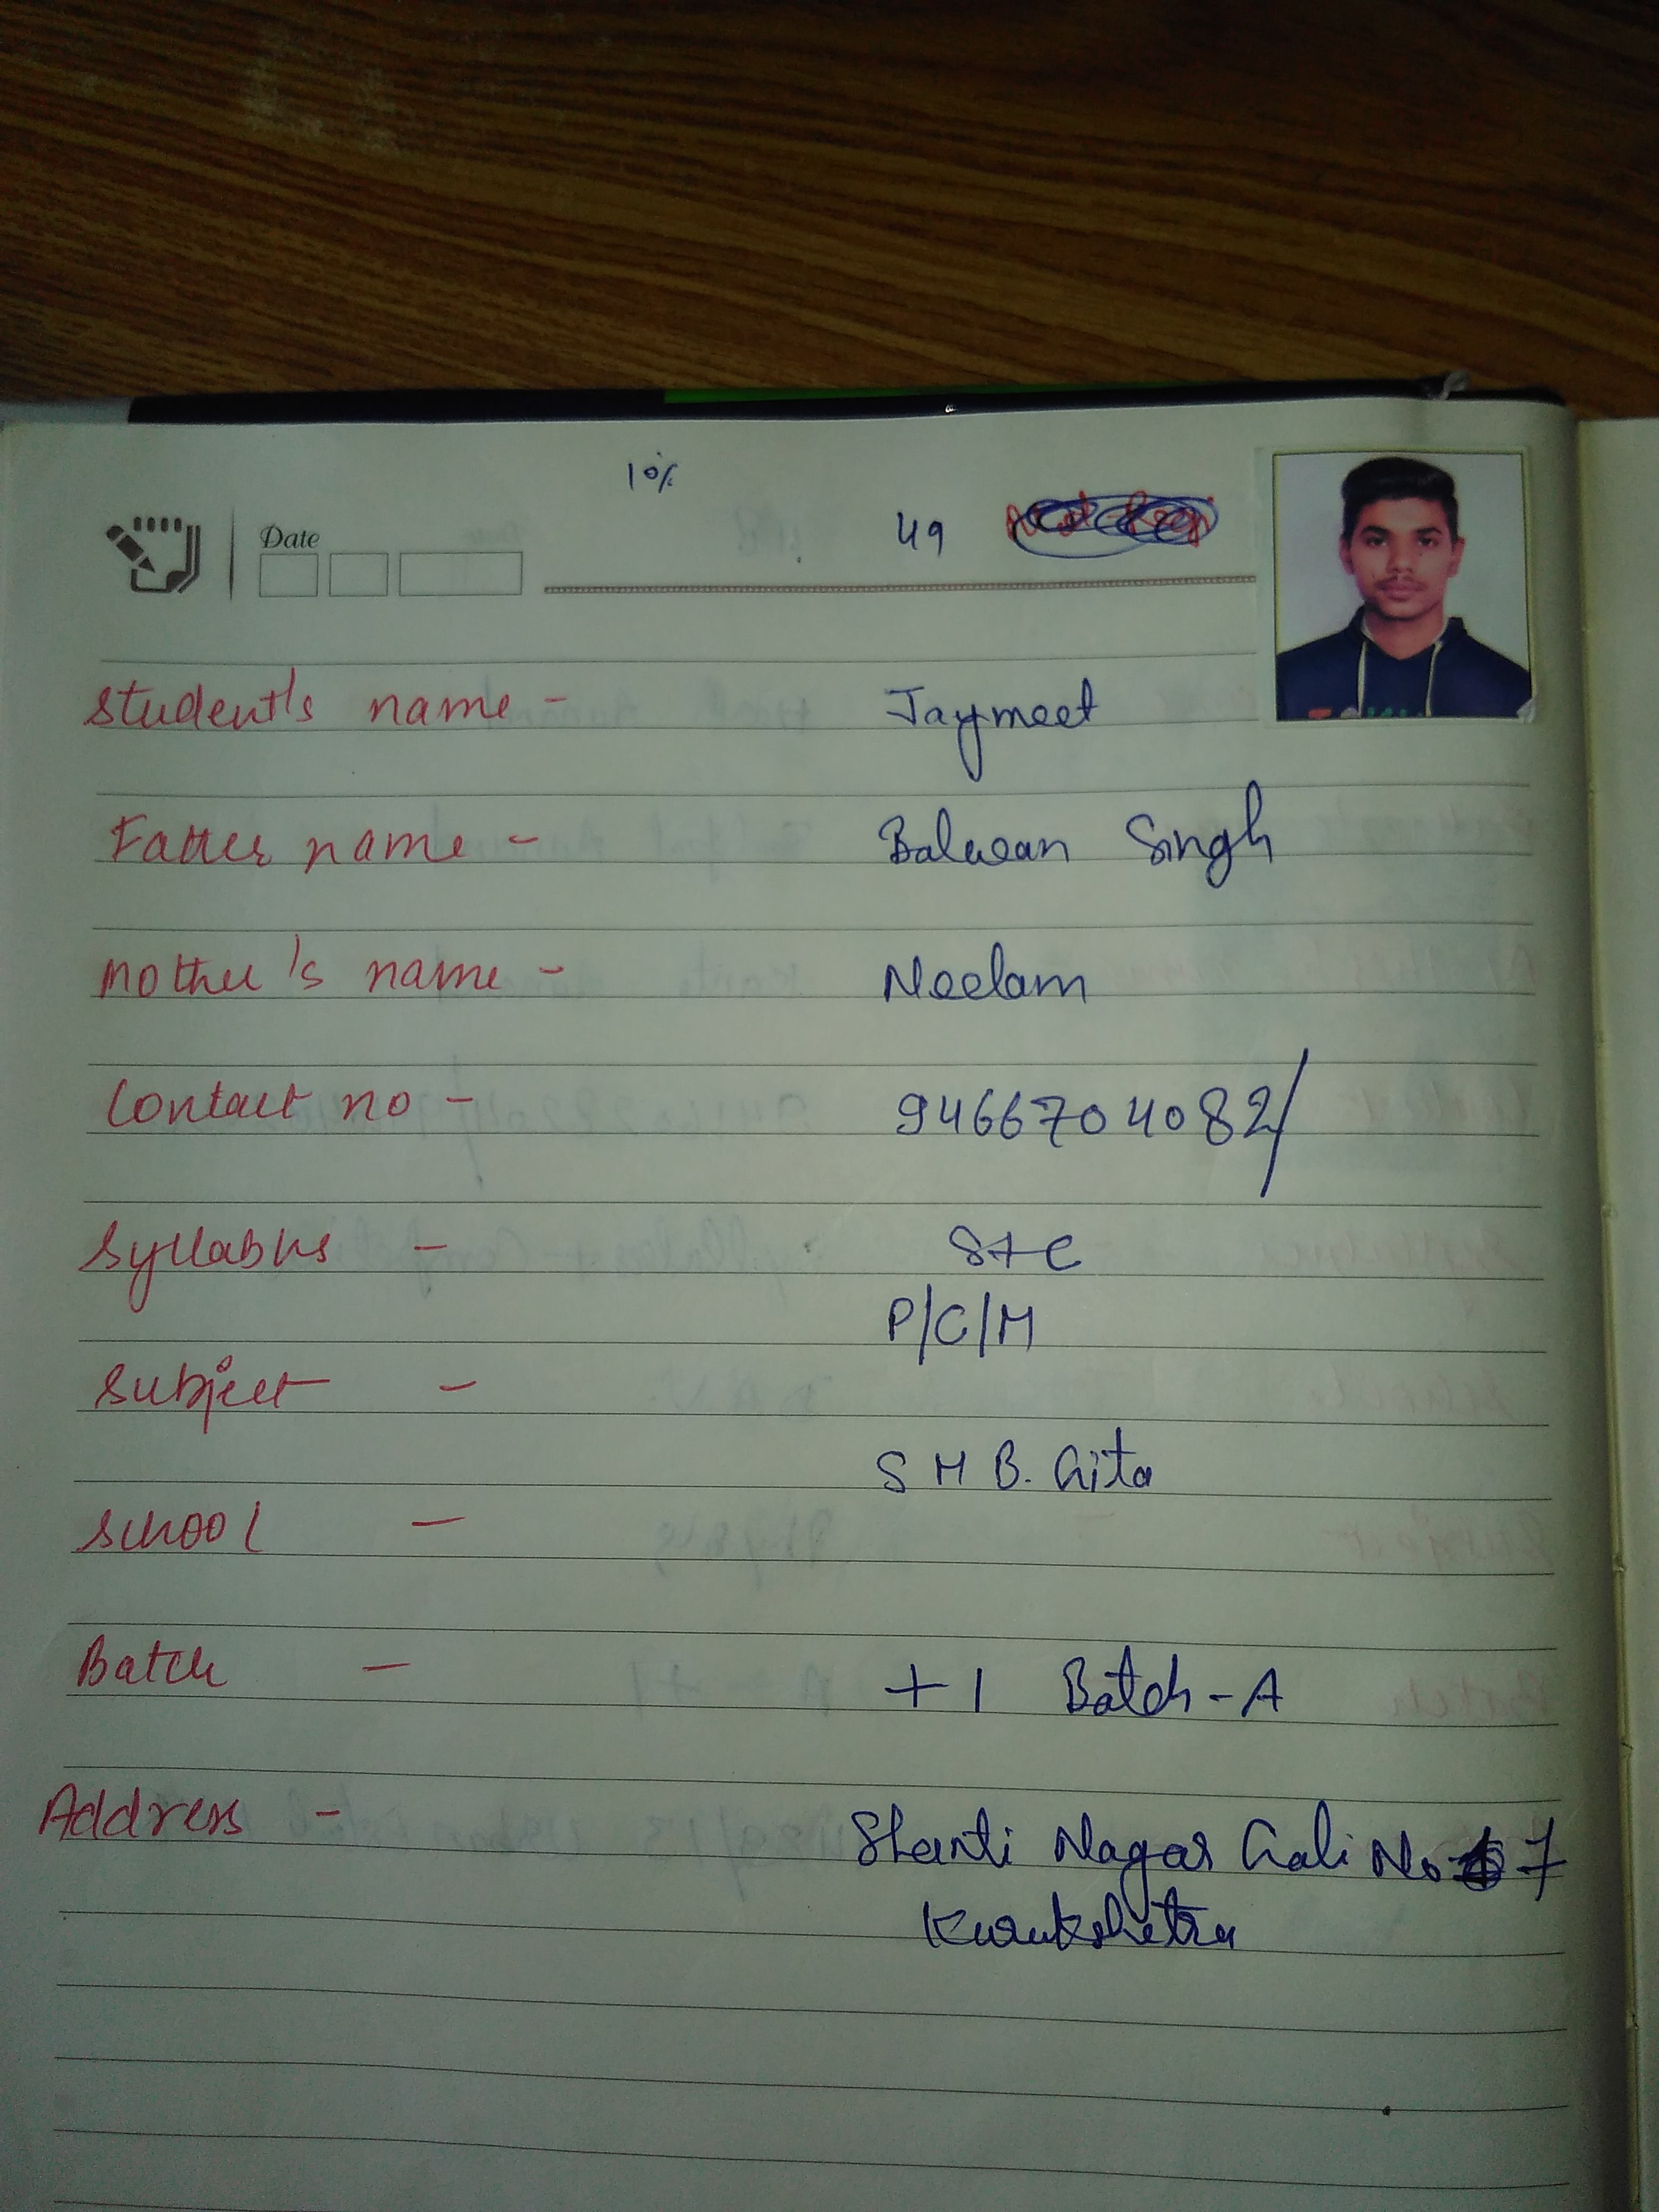 10%
Date
49
Student's name - Jaymeet
Father name - Balwan Singh
Mother's name - Neelam
Contact no - 9466704082/
Syllabus - S+C
P/C/M
Subject -
S M B. Gita
School -
Batch - +1 Batch-A
Address - Shanti Nagar Gali No 7
Kurukshetra